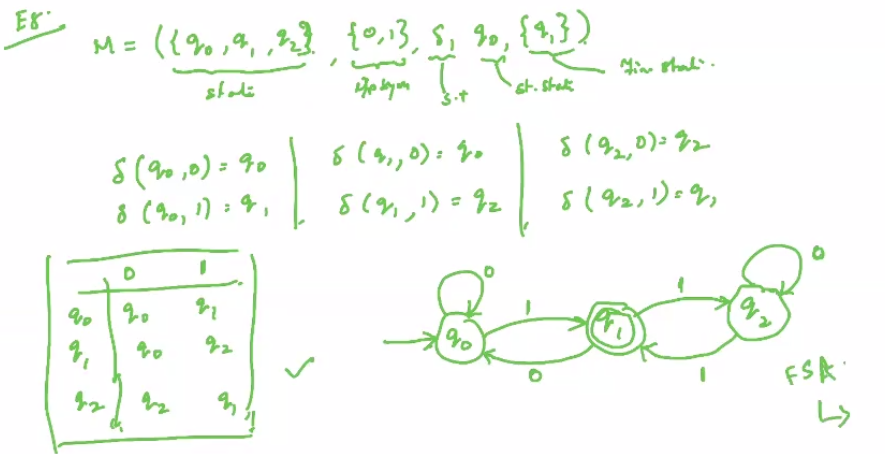 Ex:
M = ({q₀, q₁, q₂}, {0,1}, δ, q₀, {q₁})
state i/p sym s.t st. state Fin state.
δ(q₀,0) = q₀ δ(q₁,0) = q₀ δ(q₂,0) = q₂
δ(q₀,1) = q₁ δ(q₁,1) = q₂ δ(q₂,1) = q₁
0 1
q₀ q₀ q₁
q₁ q₀ q₂
q₂ q₂ q₁
0 0
1 1
q₀ q₁ q₂
0 1
FSA.